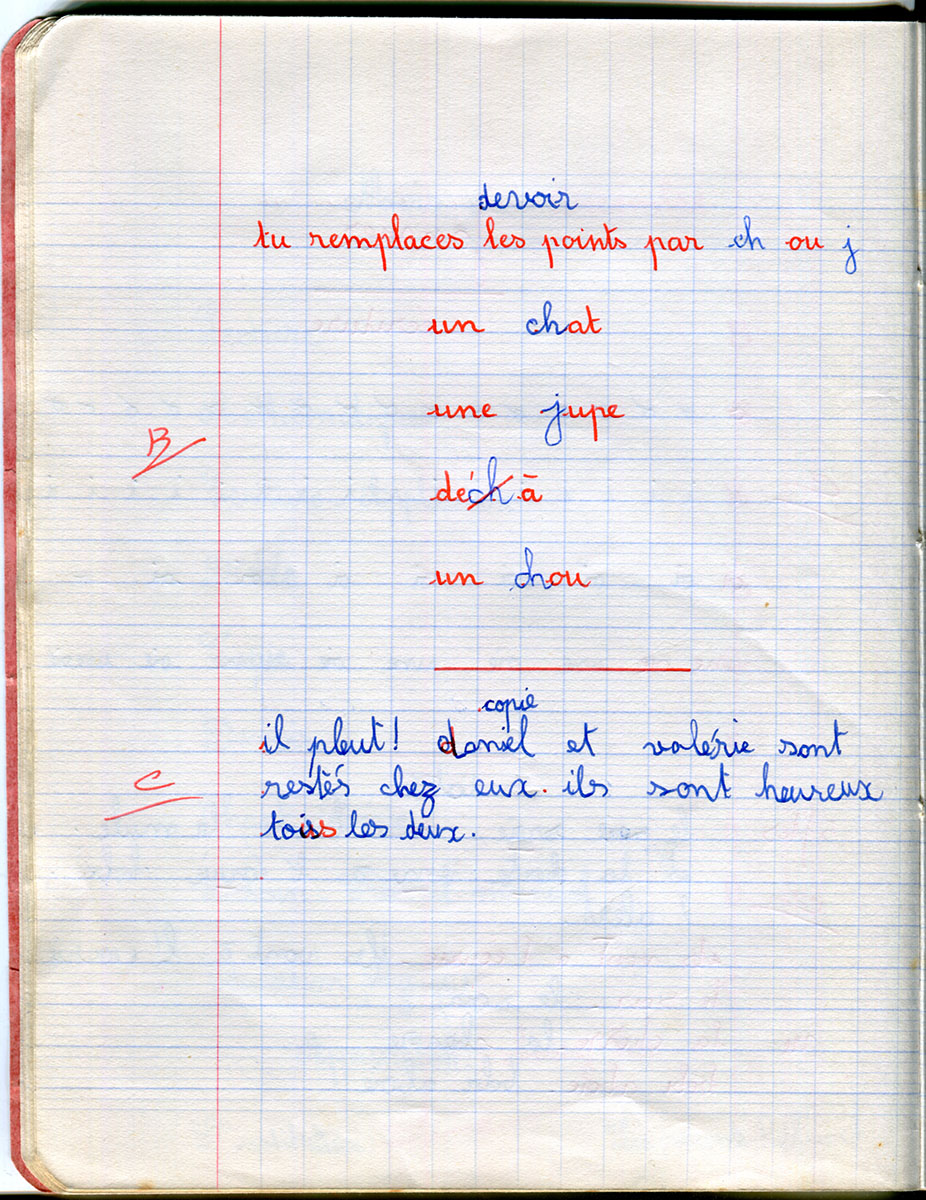 devoir
tu remplaces les points par ch ou j
un chat
une jupe
B
déchà
un chou
copie
il pleut! daniel et valérie sont
restés chez eux. ils sont heureux
C
toiss les deux.